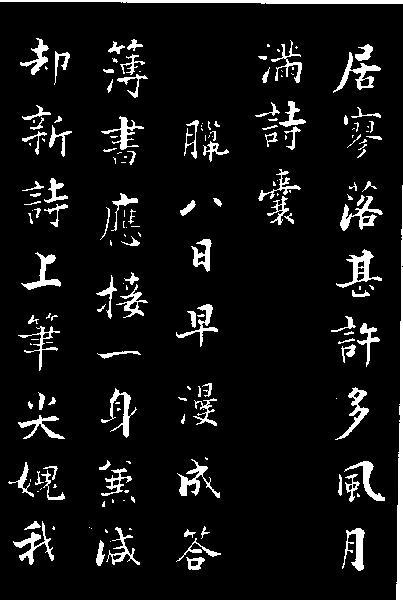 居寥落甚許多風月
滿詩囊
臘八日早漫成答
薄書應接一身兼減
却新詩上筆尖媿我